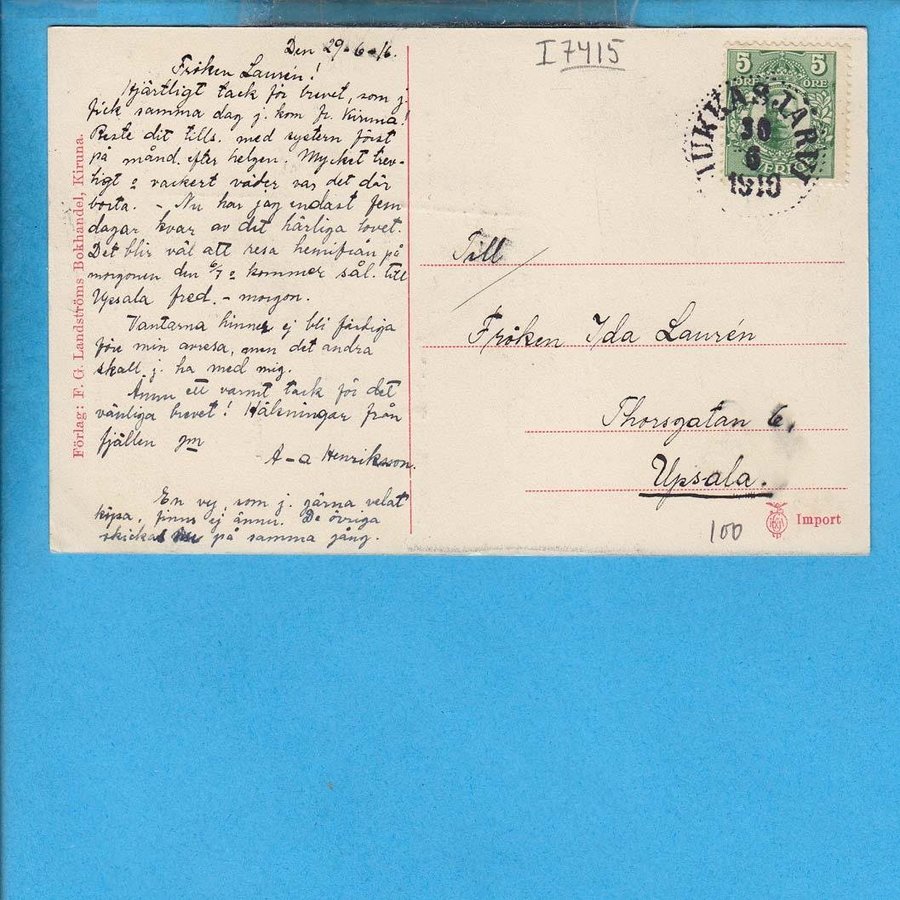 Den 29-6-16.
Fröken Laurén!
Hjärtligt tack för brevet, som j.
fick samma dag j. kom fr. Kiruna!
Reste dit tills. med systern först
på månd. efter helgen. Mycket trev-
ligt o vackert väder var det där
borta. - Nu har jag endast fem
dagar kvar av det härliga lovet.
Det blir väl att resa hemifrån på
morgonen den 6/7 o kommer sål. till
Upsala fred. - morgon.
Vantarna hinner ej bli färdiga
före min avresa, men det andra
skall j. ha med mig.
Ännu ett varmt tack för det
vänliga brevet! Hälsningar från
fjällen gm
A-a Henriksson.
En vy, som j. gärna velat
köpa, finns ej ännu. De övriga
skickas på samma gång.
Förlag: F. G. Landströms Bokhandel, Kiruna.
I7415
5 5
ÖRE ÖRE
SVERIGE
JUKKASJÄRVI
30
6
Till
Fröken Ida Laurén
Thorsgatan 6.
Upsala.
100
Import